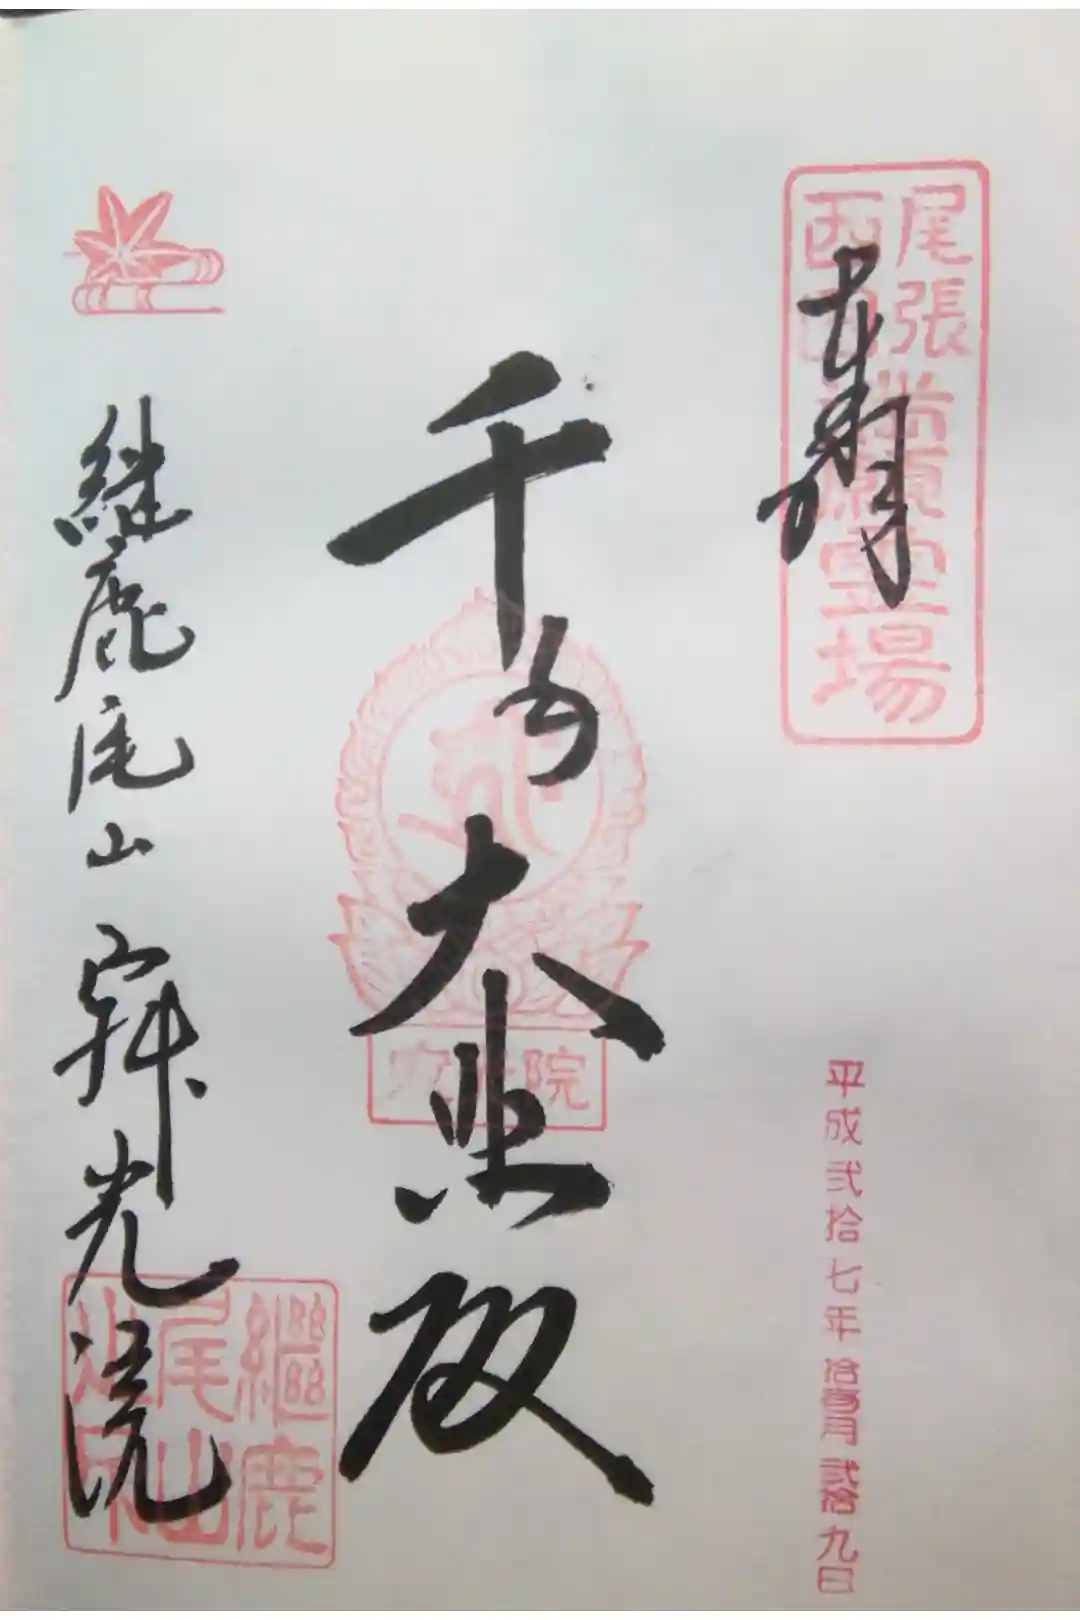 尾張
西国
満願霊場
平成弐拾七年拾壱月弐拾九日
千手大悲殿
寂光院
継鹿尾山 寂光院
繼鹿
尾山